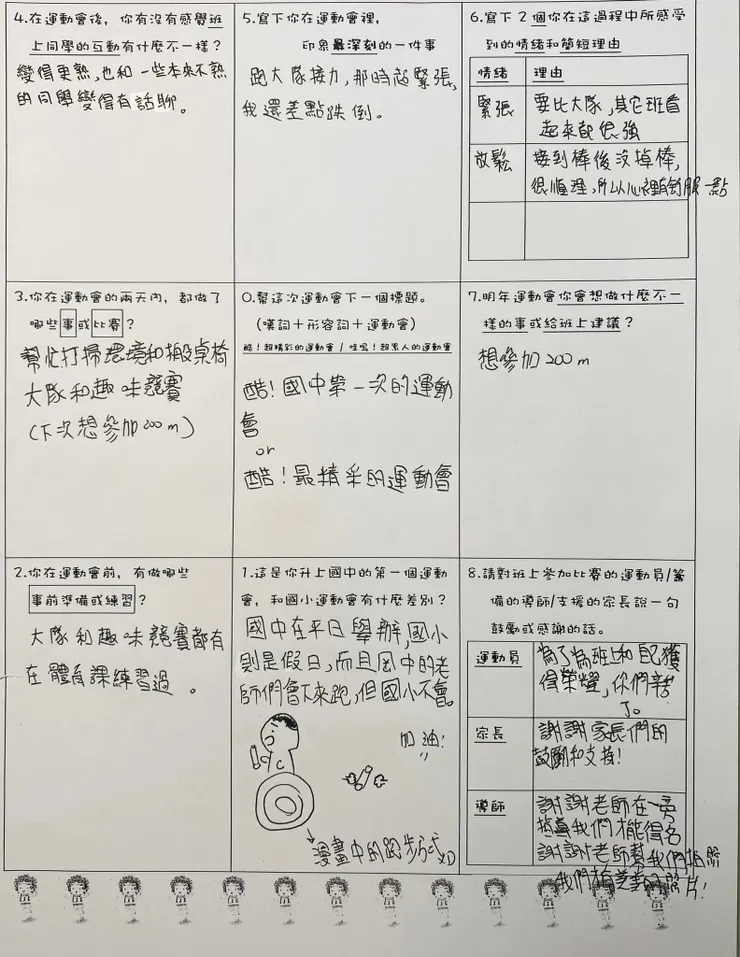 4.在運動會後，你有沒有感覺班
上同學的互動有什麼不一樣？
變得更熟，也和一些本來不熟
的同學變得有話聊。
5.寫下你在運動會裡，
印象最深刻的一件事
跑大隊接力，那時超緊張，
我還差點跌倒。
6.寫下 2 個你在這過程中所感受
到的情緒和簡短理由
情緒 理由
緊張 要比大隊，其它班看
起來都很強
放鬆 接到棒後沒掉棒，
很順理，所以心裡有舒服一點
3.你在運動會的兩天內，都做了
哪些事或比賽？
幫忙打掃環境和搬桌椅
大隊和趣味競賽
(下次想參加200m)
0.幫這次運動會下一個標題。
(嘆詞＋形容詞＋運動會)
酷！超精彩的運動會 / 哇嗚！超累人的運動會
酷！國中第一次的運動
會
or
酷！最精采的運動會
7.明年運動會你會想做什麼不一
樣的事或給班上建議？
想參加200m
2.你在運動會前，有做哪些
事前準備或練習？
大隊和趣味競賽都有
在體育課練習過。
1.這是你升上國中的第一個運動
會，和國小運動會有什麼差別？
國中在平日舉辦，國小
則是假日，而且國中的老
師們會下來跑，但國小不會。
加油！
漫畫中的跑步方式XD
8.請對班上參加比賽的運動員/籌
備的導師/支援的家長說一句
鼓勵或感謝的話。
運動員 為了為班上和自己獲
得榮耀，你們辛苦
了。
家長 謝謝家長們的
鼓勵和支持！
導師 謝謝老師在一旁
指導我們才能得名
謝謝老師幫我們拍照
我們
照片！